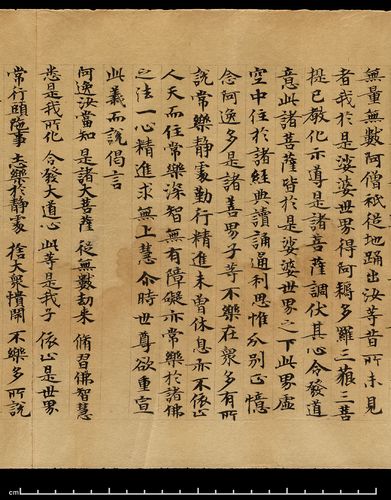 無量無數阿僧祇從地踊出汝等昔所未見
者我於是娑婆世界得阿耨多羅三藐三菩
提已教化示導是諸菩薩調伏其心令發道
意此諸菩薩皆於是娑婆世界之下此界虛
空中住於諸經典讀誦通利思惟分別正憶
念阿逸多是諸善男子等不樂在眾多有所
說常樂靜處懃行精進未曾休息亦不依止
人天而住常樂深智無有障礙亦常樂於諸佛
之法一心精進求無上慧尒時世尊欲重宣
此義而說偈言
阿逸汝當知 是諸大菩薩 從無數劫來 脩習佛智慧
悉是我所化 令發大道心 此等是我子 依止是世界
常行頭陁事 志樂於靜處 捨大眾憒閙 不樂多所說
cm